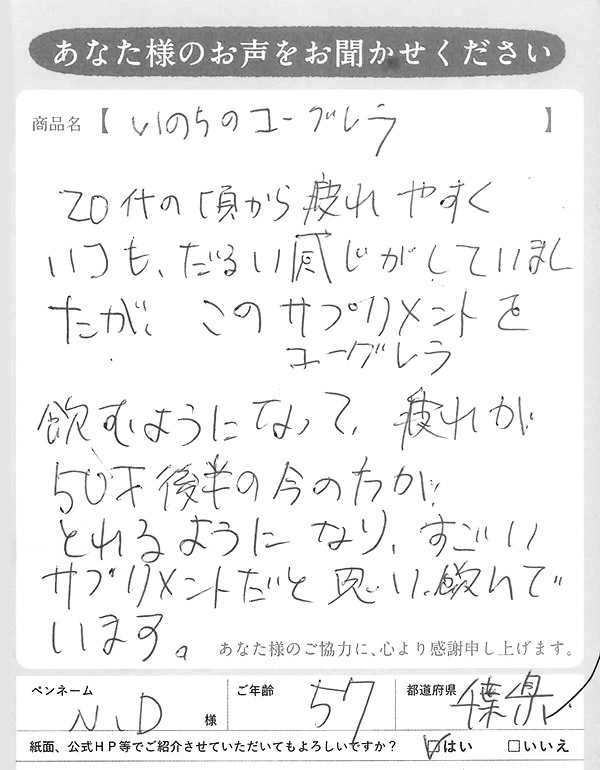 あなた様のお声をお聞かせください
商品名【いのちのユーグレラ】
20代の頃から疲れやすく
いつも、だるい感じがしていまし
たが、このサプリメントを
ユーグレラ
飲むようになって、疲れが
50才後半の今のたが
とれるようになり、すごい
サプリメントだと思い飲んで
います。
あなた様のご協力に、心より感謝申し上げます。
ペンネーム N.D 様 ご年齢 57 都道府県 千葉県
紙面、公式HP等でご紹介させていただいてもよろしいですか? ☑はい □いいえ